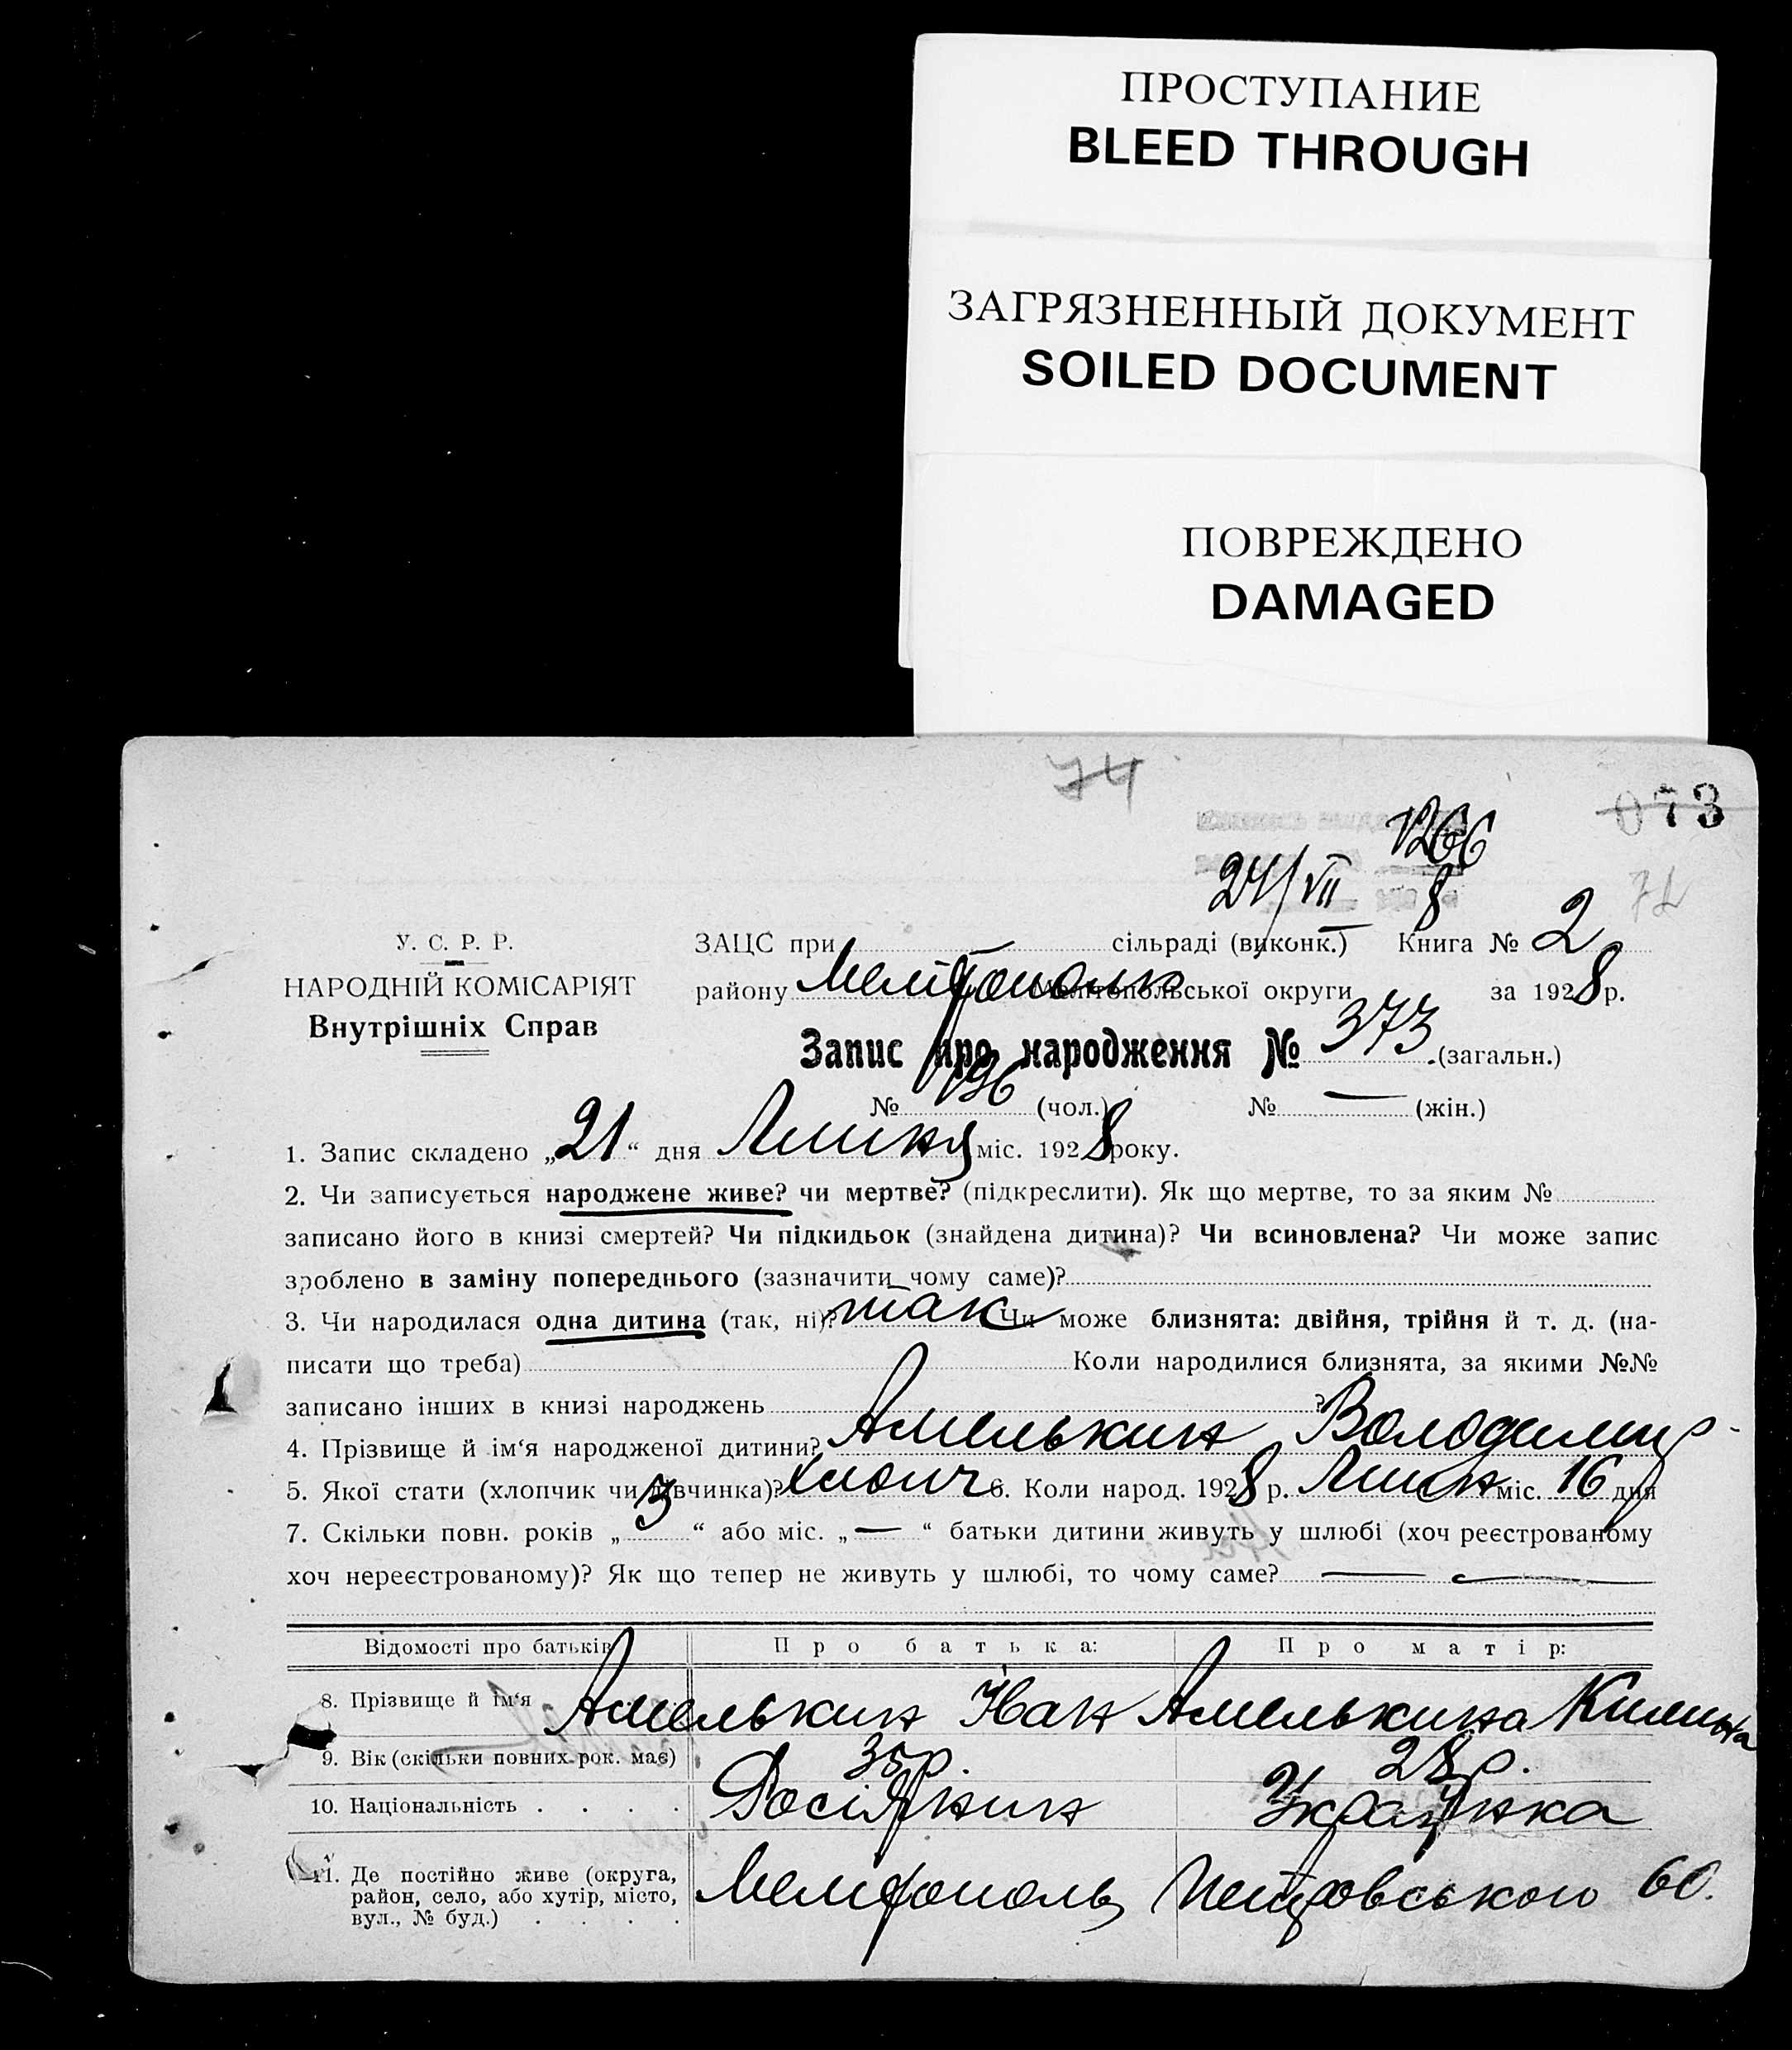 ПРОСТУПАНИЕ
BLEED THROUGH
ЗАГРЯЗНЕННЫЙ ДОКУМЕНТ
SOILED DOCUMENT
ПОВРЕЖДЕНО
DAMAGED
74
073
1266
24/VII 8
У. С. Р. Р.
НАРОДНІЙ КОМІСАРІЯТ
Внутрішніх Справ
ЗАЦС при сільраді (виконк.) Книга № 2
району Мелітополь Мелітопольської округи за 1928 р.
Запис про народження № 373 (загальн.)
№ 196 (чол.) № — (жін.)
1. Запис складено „21“ дня Липня міс. 1928 року.
2. Чи записується народжене живе? чи мертве? (підкреслити). Як що мертве, то за яким №
записано його в книзі смертей? Чи підкидьок (знайдена дитина)? Чи всиновлена? Чи може запис
зроблено в заміну попереднього (зазначити чому саме)?
3. Чи народилася одна дитина (так, ні)? так Чи може близнята: двійня, трійня й т. д. (на-
писати що треба) Коли народилися близнята, за якими №№
записано інших в книзі народжень ?
4. Прізвище й ім‘я народженої дитини? Амелькин Володимир
5. Якої стати (хлопчик чи дівчинка)? хлопч 6. Коли народ. 1928 р. Липня міс. 16 дня
7. Скільки повн. років „3“ або міс. „—“ батьки дитини живуть у шлюбі (хоч реєстрованому
хоч нереєстрованому)? Як що тепер не живуть у шлюбі, то чому саме? —
Відомості про батьків Про батька: Про матір:
8. Прізвище й ім‘я Амелькин Іван Амелькина Килина
9. Вік (скільки повних рок. має) 35 р. 28 р.
10. Національність . . . . Росіянин Українка
11. Де постійно живе (округа,
район, село, або хутір, місто,
вул., № буд.) . . . .
Мелітополь Петровського 60.